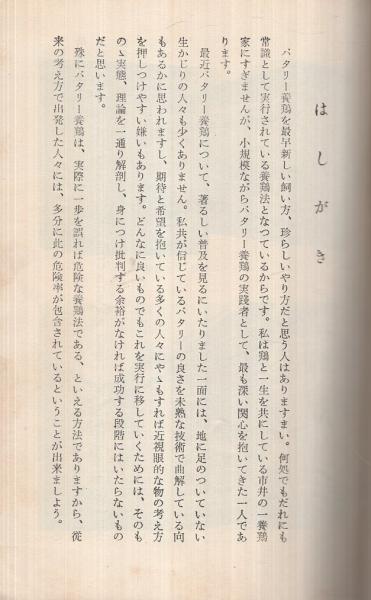 はしがき
バタリー養鶏を最早新しい飼い方、珍らしいやり方だと思う人はありますまい。何処でもだれにも
常識として実行されている養鶏法となつているからです。私は鶏と一生を共にしている市井の一養鶏
家にすぎませんが、小規模ながらバタリー養鶏の実践者として、最も深い関心を抱いてきた一人であ
ります。
最近バタリー養鶏について、著るしい普及を見るにいたりました一面には、地に足のついていない
生かじりの人々も少くありません。私共が信じているバタリーの良さを未熟な技術で曲解している向
もあるかに思われますし、期待と希望を抱いている多くの人々にやゝもすれば近視眼的な物の考え方
を押しつけやすい嫌いもあります。どんなに良いものでもこれを実行に移していくためには、そのも
のゝ実態、理論を一通り解剖し、身につけ批判する余裕がなければ成功する段階にはいたらないもの
だと思います。
殊にバタリー養鶏は、実際に一歩を誤れば危険な養鶏法である、といえる方法でありますから、従
来の考え方で出発した人々には、多分に此の危険率が包含されているということが出来ましよう。